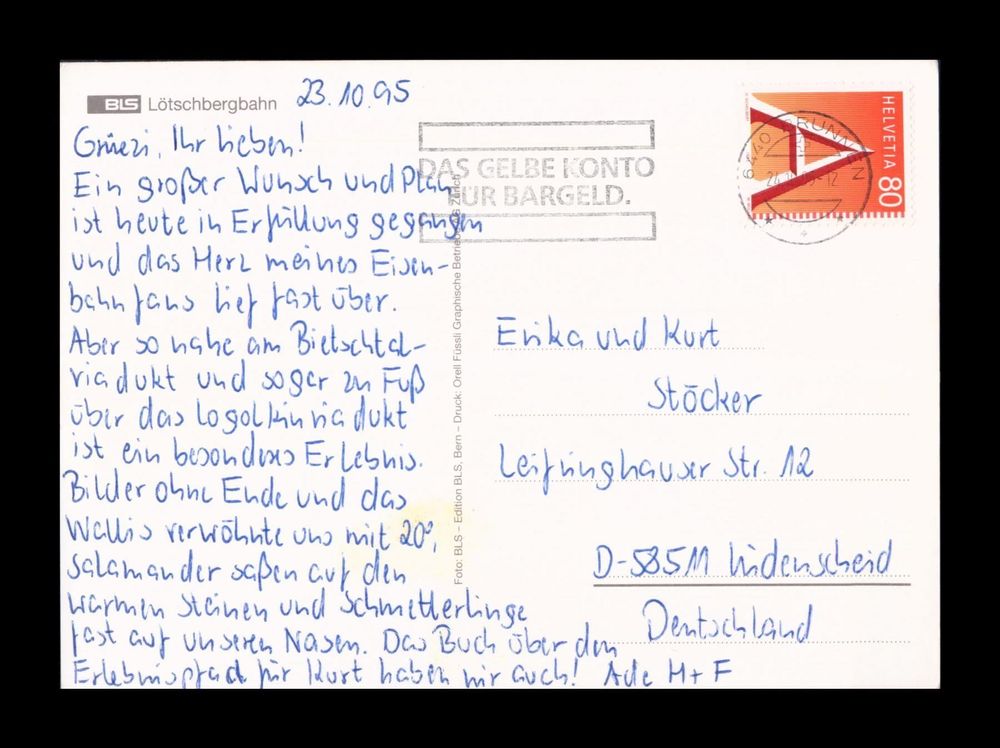 BLS Lötschbergbahn 23.10.95
Grüezi, Ihr Lieben!
Ein großer Wunsch und Plan
ist heute in Erfüllung gegangen
und das Herz meines Eisen-
bahnfans lief fast über.
Aber so nahe am Bietschtal-
viadukt und sogar zu Fuß
über das Logolkinviadukt
ist ein besonderes Erlebnis.
Bilder ohne Ende und das
Wallis verwöhnte uns mit 20°,
Salamander saßen auf den
warmen Steinen und Schmetterlinge
fast auf unseren Nasen. Das Buch über den
Erlebnispfad für Kurt haben wir auch! Ade M+F
DAS GELBE KONTO
FÜR BARGELD.
Foto: BLS – Edition BLS, Bern – Druck: Orell Füssli Graphische Betriebe AG Zürich
HELVETIA 80
6440 BRUNNEN
Erika und Kurt
Stöcker
Leifringhauser Str. 12
D-58511 Lüdenscheid
Deutschland